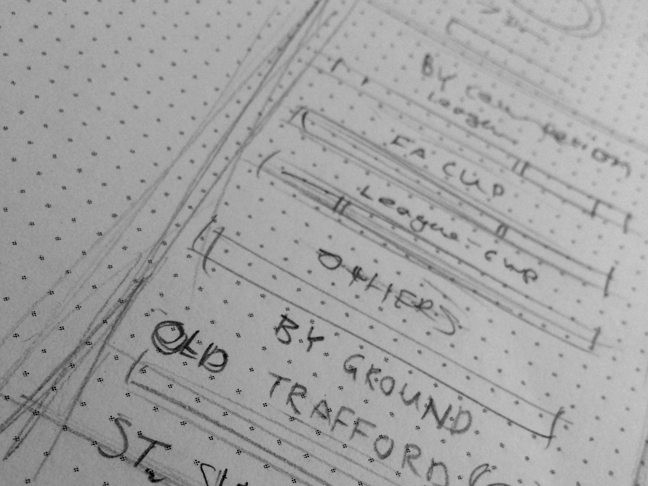 BY competition
League
FA CUP
League-cup
OTHERS
BY GROUND
OLD TRAFFORD
ST